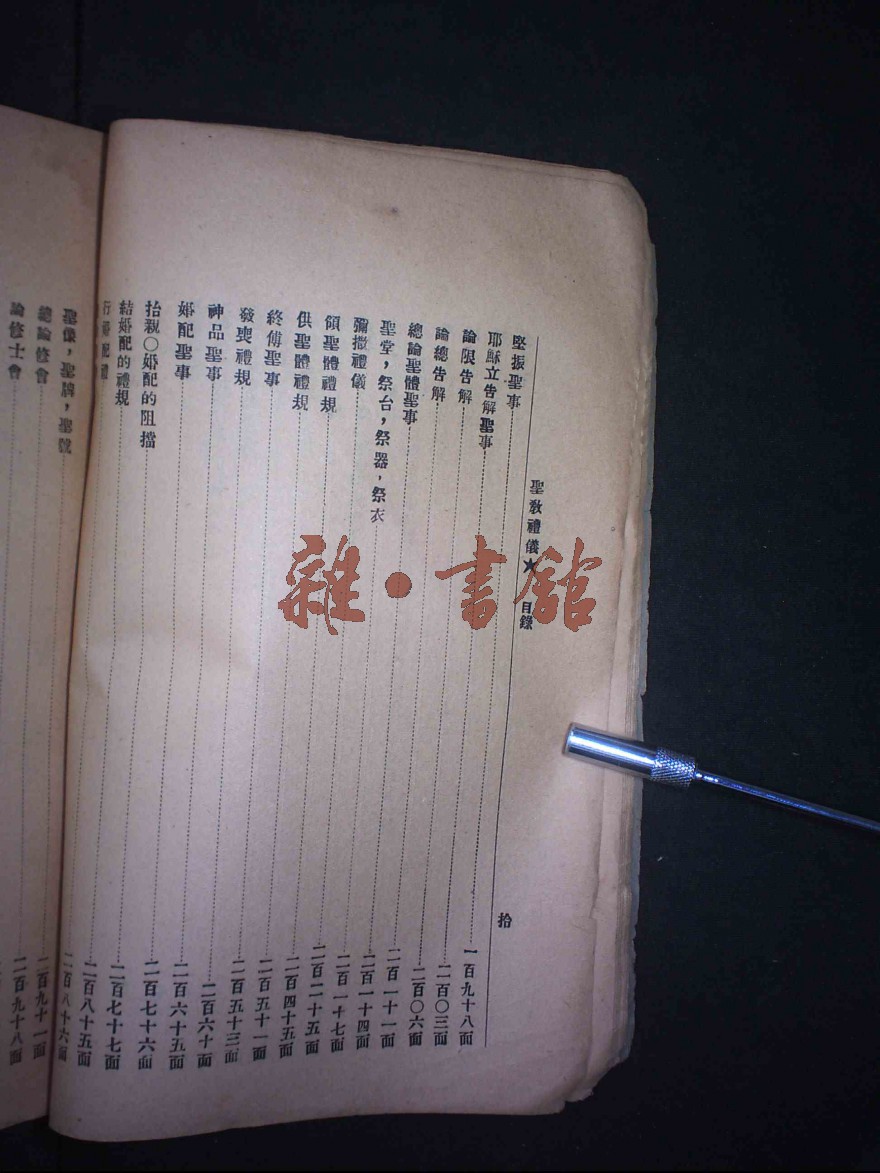 聖教禮儀★ 目錄 拾
堅振聖事 一百九十八面
耶穌立告解聖事 二百〇三面
論限告解 二百〇六面
論總告解 二百一十一面
總論聖體聖事 二百一十四面
聖堂，祭台，祭器，祭衣 二百一十七面
彌撒禮儀 二百二十五面
領聖體禮規 二百四十五面
供聖體禮規 二百五十一面
終傅聖事 二百五十三面
發喪禮規 二百六十面
神品聖事 二百六十五面
婚配聖事 二百七十六面
抬親〇婚配的阻擋 二百七十七面
結婚配的禮規 二百八十五面
行婚配禮 二百八十六面
聖像，聖牌，聖號 二百九十一面
總論修會 二百九十八面
論修士會
雜·書館